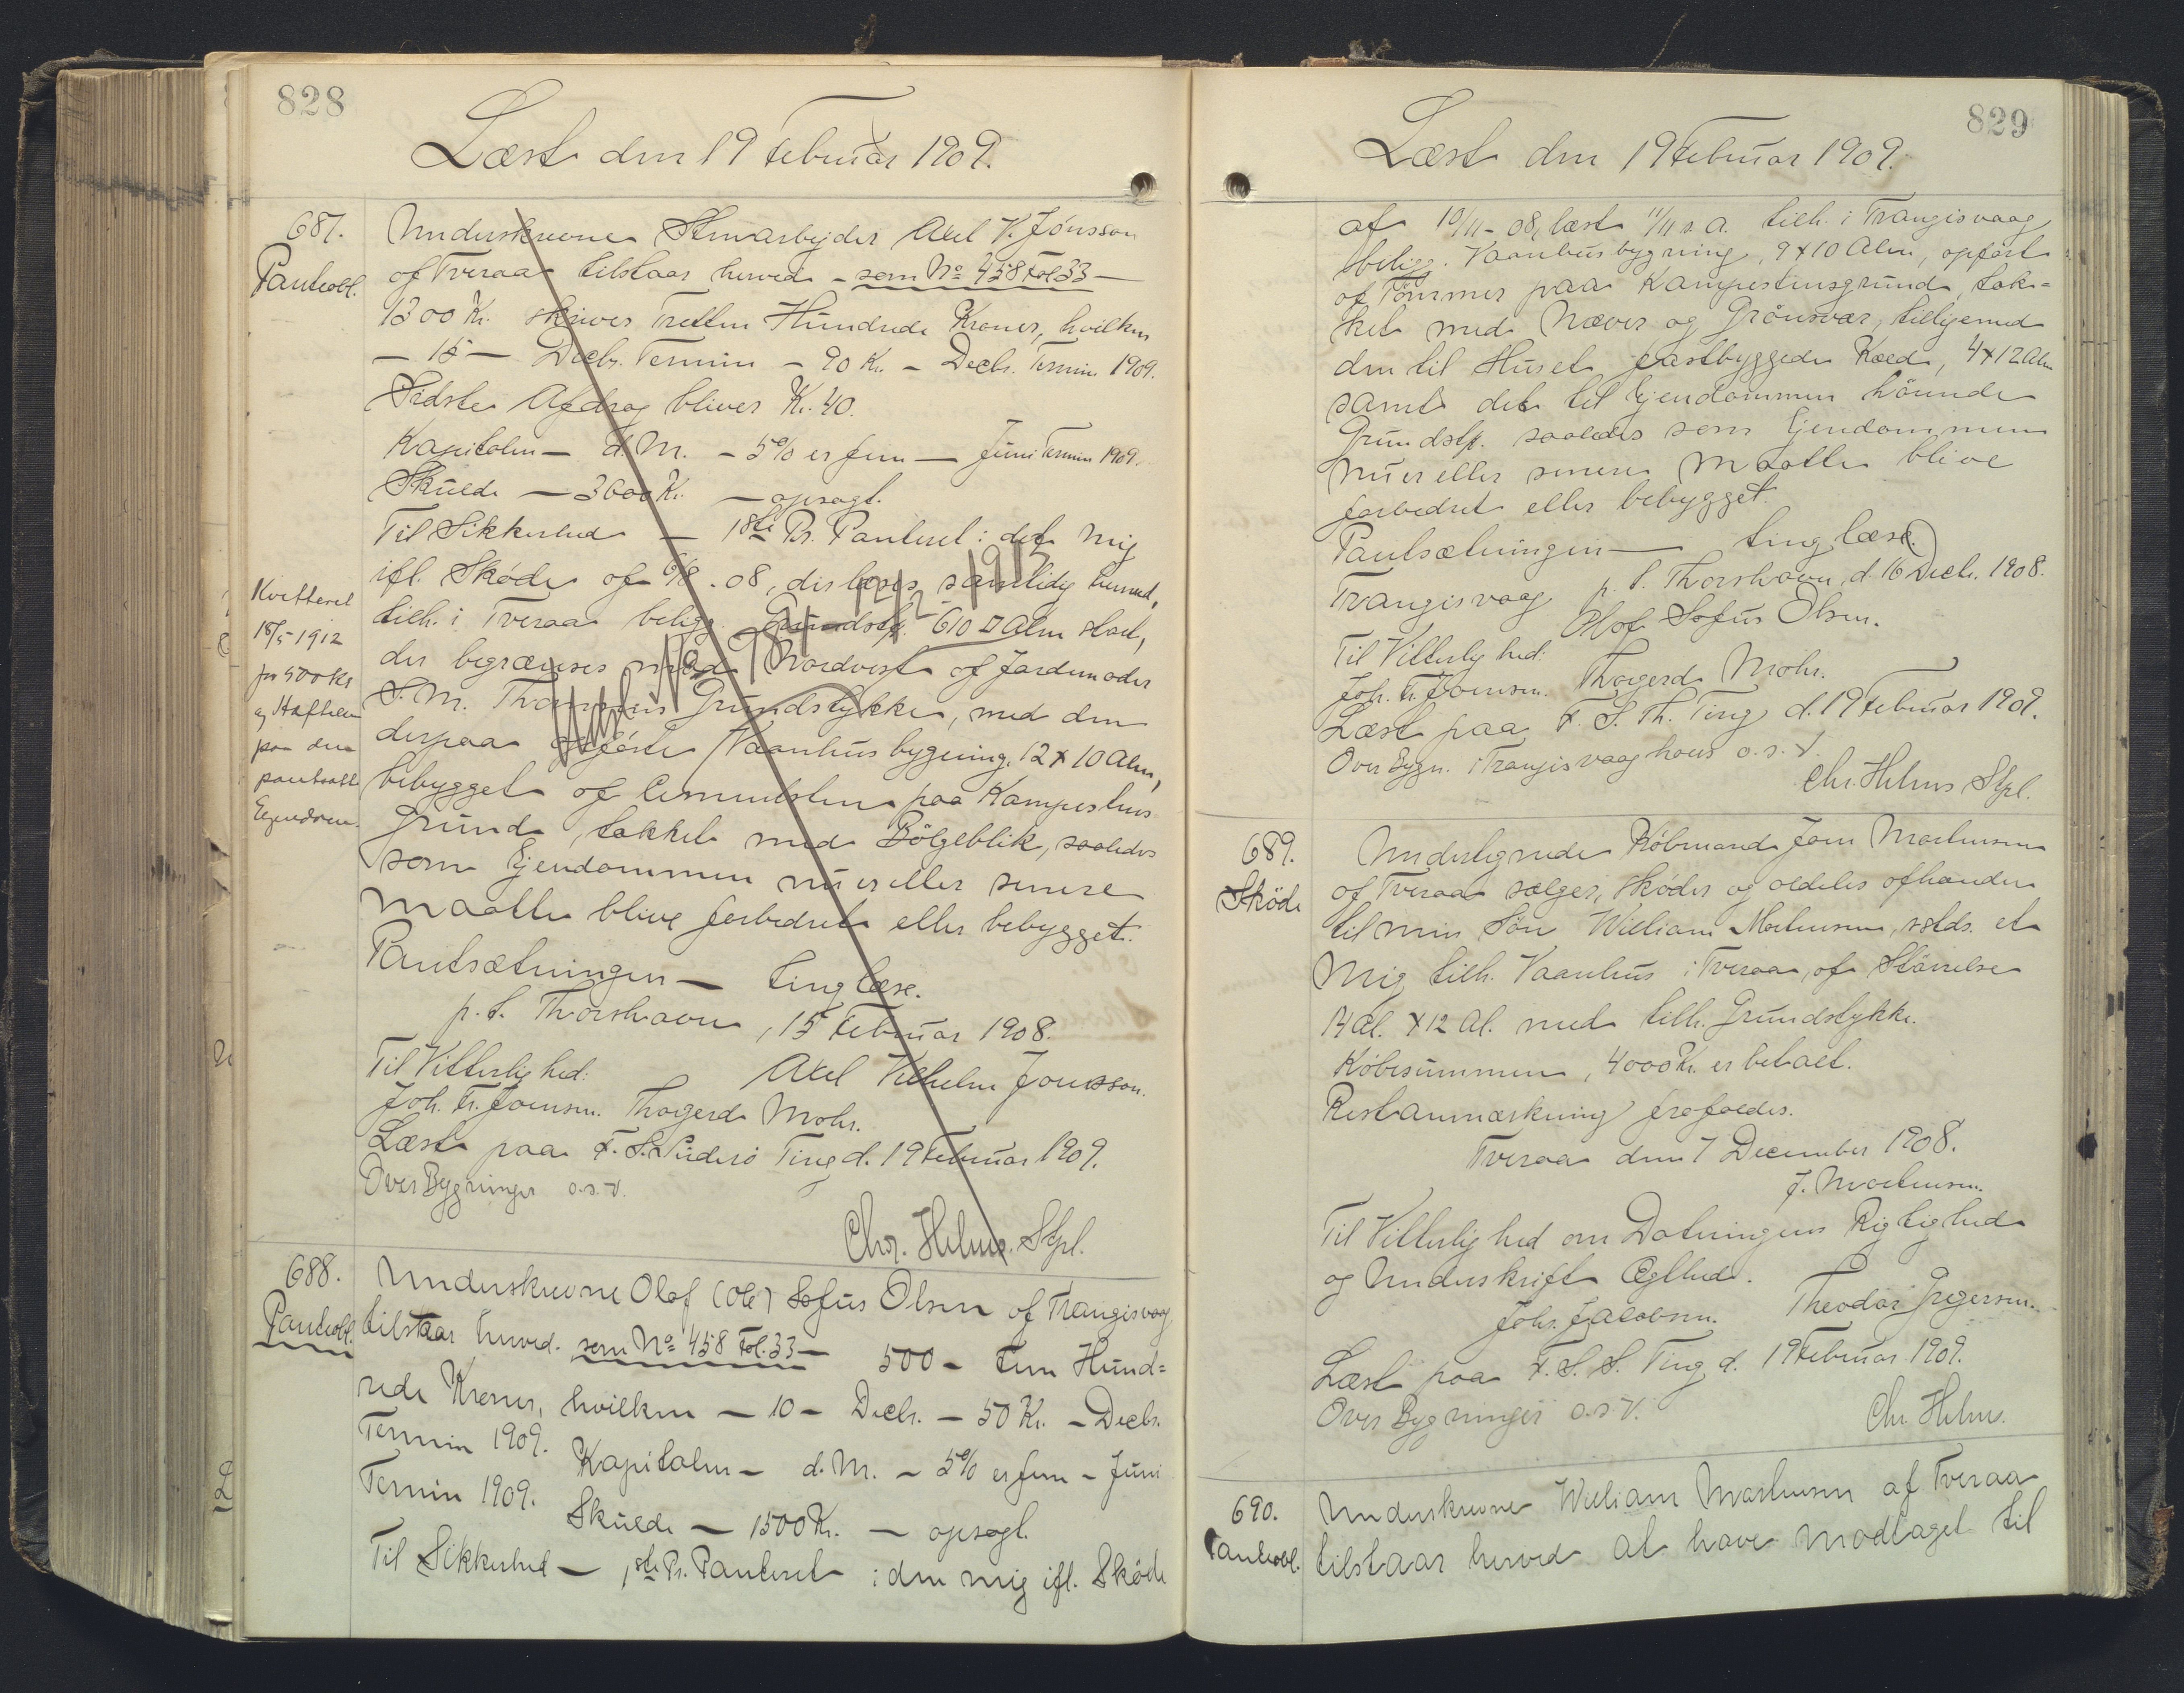 828
Læst den 19 Februar 1909.
687.
Panteobl.
Underskrevne Stenarbejder Axel V. Jónsson
af Tveraa tilstaar herved - som No 458 Fol 33 —
1300 Kr. skriver Tretten Hundrede Kroner, hvilken
— 15 — Decbr. Termin — 90 Kr. — Decbr. Termin 1909.
Sidste Afdrag bliver Kr. 40.
Kapitalen — d. M. — 5% er fem — Juni Termin 1909.
Skulde — 3600 Kr. — opsagt.
Til Sikkerhed — 1ste Pr. Panteret i det mig
ifl. Skøde af 6/8 - 08, der læses samtidig hermed,
tilh. i Tveraa beligg. Grundstk. 610 □ Alen stort,
der begrænses mod Nordvest af Jordemoder
S. M. Thomsens Grundstykke, med den
derpaa opførte Vaanhusbygning, 12 x 10 Alen,
bebygget af Cementsten paa Kampestens
Grund, takket med Bölgeblik, saaledes
som Ejendommen nu er eller senere
maatte blive forbedret eller bebygget.
Pantsætningen — tinglæse.
p. t. Thorshavn, 15 Februar 1908.
Til Vitterlighed: Axel Vilhelm Jonsson.
Joh. Fr. Joensen. Thogerd Mohr.
Læst paa F. S. Suderö Ting d. 19 Februar 1909.
Over Bygninger o.s.v.
Chr. Helms. Stpl.
Kvitteret
18/5 1912
for 500 Kr
og Hæftelsen
paa den
pantsatte
Ejendom.
Udsl. No 984 12/2 1912
688.
Panteobl.
Underskrevne Olaf (Ole) Sofus Olsen af Trangisvaag
tilstaar herved. som No 458 Fol. 33 — 500 - Fem Hund=
rede Kroner, hvilken — 10 — Decbr. — 50 Kr. — Decbr.
Termin 1909. Kapitalen — d. M. — 5% er fem — Juni
Termin 1909. Skulde — 1500 Kr. — opsagt.
Til Sikkerhed — 1ste Pr. Panteret i den mig ifl. Skøde
829
Læst den 19 Februar 1909.
af 10/11 - 08, læst 11/11 s. A. tilh. i Trangisvaag
belligg. Vaanhusbygning, 9 x 10 Alen, opført
af Tømmer paa Kampestensgrund, tak=
ket med Næver og Grönsvær, tilligemed
den til Huset fastbyggede Kæld, 4 x 12 Alen
samt det til Ejendommen hörende
Grundstk. saaledes som Ejendommen
nu er eller senere maatte blive
forbedret eller bebygget.
Pantsætningen — tinglæse.
Trangisvaag p. t. Thorshavn, d. 16 Decbr. 1908.
Olof Sofus Olsen.
Til Vitterlighed:
Joh. Fr. Joensen. Thogerd Mohr.
Læst paa F. S. Th. Ting d. 19 Februar 1909.
Over Bygn. i Trangisvaag haves o.s.v.
Chr. Helms Stpl.
689.
Skøde
Undertegnede Købmand Joen Mortensen
af Tveraa sælger, skøder og aldeles afhænder
til min Sön William Mortensen, sstds. et
mig tilh. Vaanhus i Tveraa, af Störrelse
14 Al. x 12 Al. med tilh. Grundstykke.
Købesummen, 4000 Kr. er betalt.
Restanmærkning frafaldes.
Tveraa den 7 December 1908.
J. Mortensen.
Til Vitterlighed om Dateringens Rigtighed
og Underskrifts Ægthed.
Johs. Jacobsen. Theodor Gregersen.
Læst paa F. S. S. Ting d. 19 Februar 1909.
Over Bygninger o.s.v. Chr. Helms.
690.
Panteobl.
Underskrevne William Mortensen af Tveraa
tilstaar herved at have modtaget til